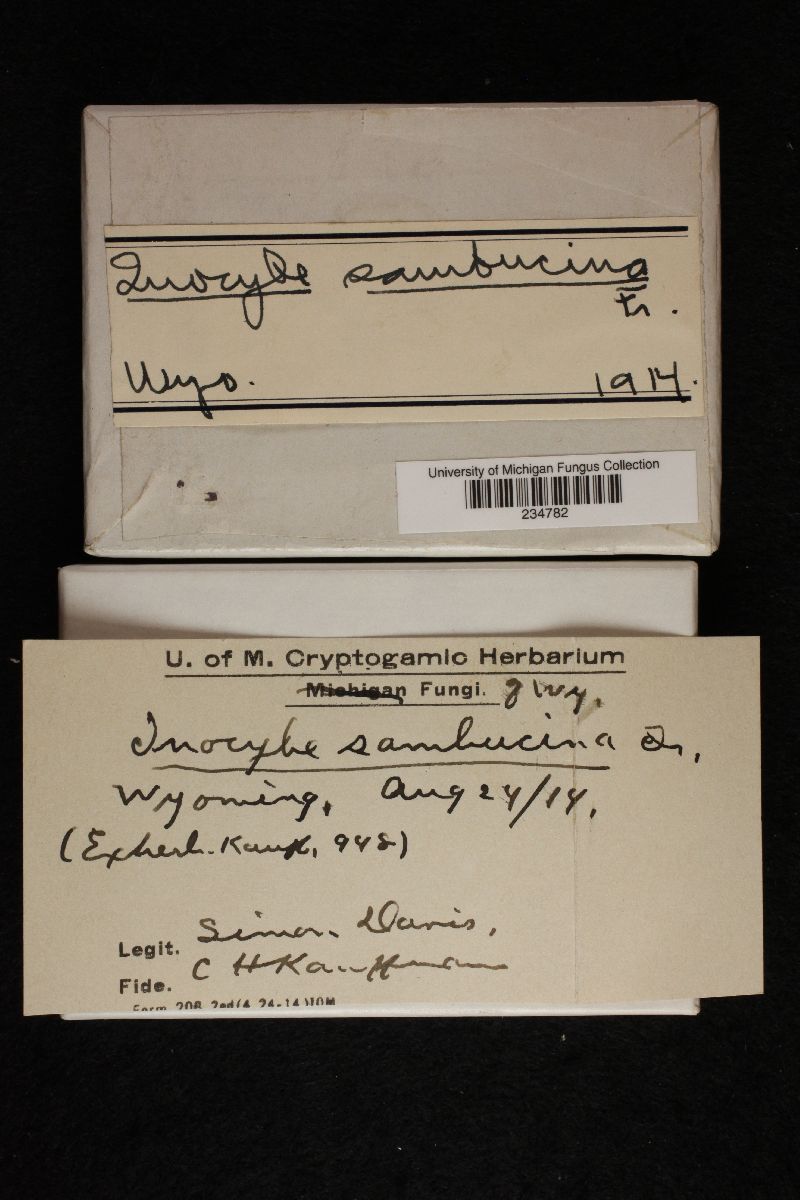 Inocybe sambucina
Fr.
Wyo. 1914.
University of Michigan Fungus Collection
234782
U. of M. Cryptogamic Herbarium
Michigan Fungi. Wy.
Inocybe sambucina Fr.
Wyoming, Aug 24/14.
(Exherb. Kauff. 948)
Legit. Simon Davis.
Fide. C H Kauffman
Form 206 2ed(4 24-14)10M